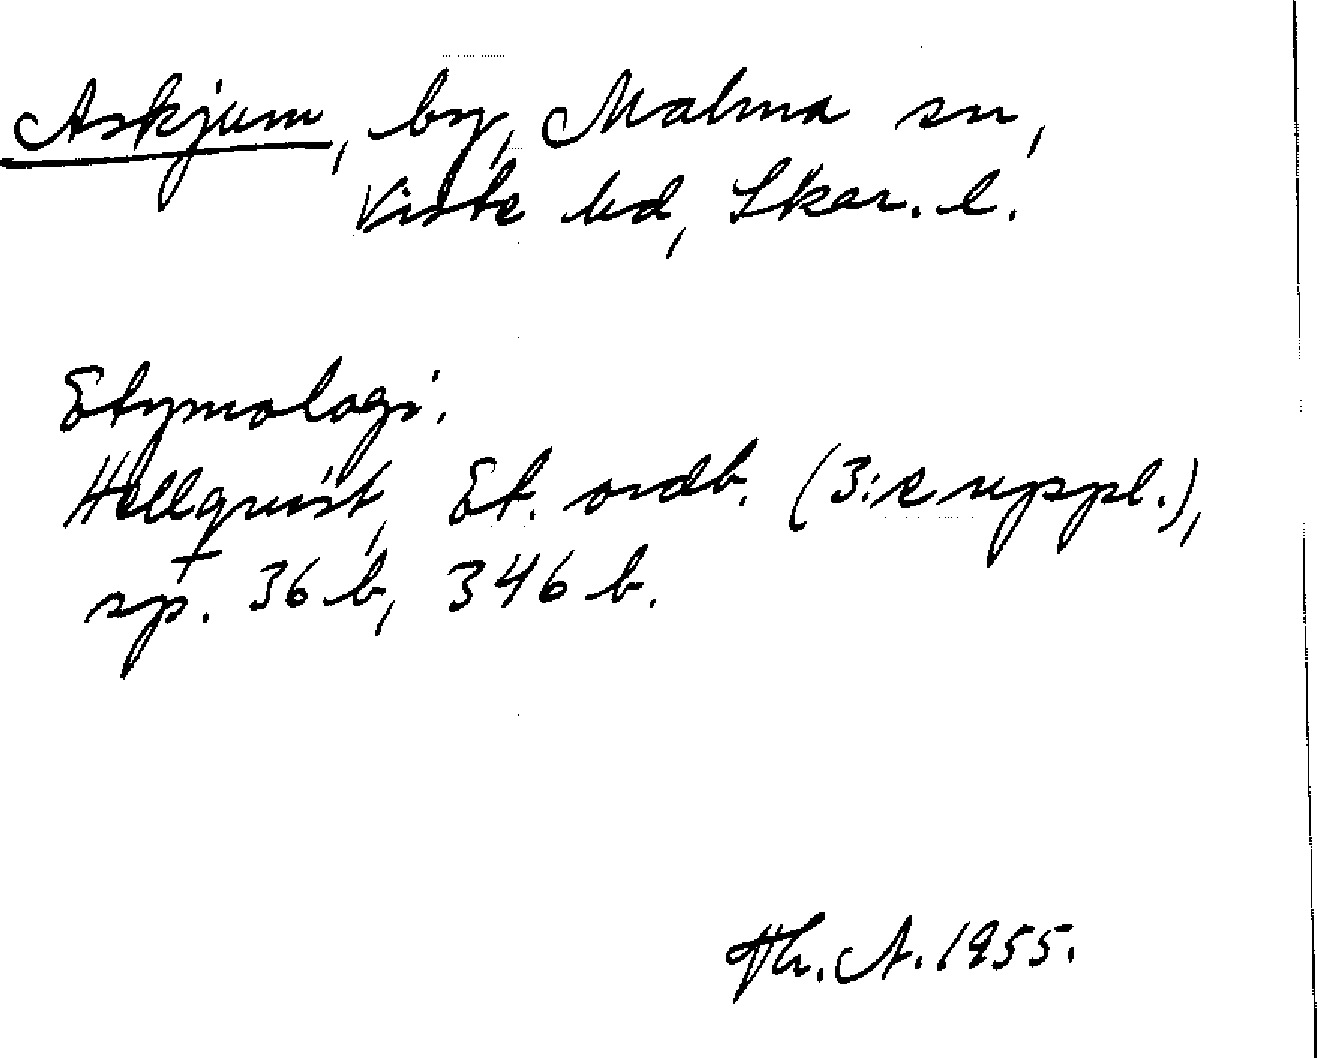 Askjum, by, Malma sn,
Viste hd, Skar. l.
Etymologi.
Hellquist, Et. ordb. (3:e uppl.),
sp. 36 b, 346 b.
Th. A. 1955.